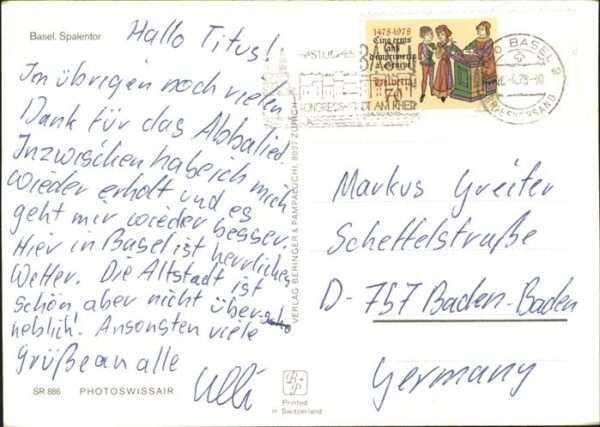 Basel. Spalentor
Hallo Titus!
Im übrigen noch vielen
Dank für das Abbalied.
Inzwischen habe ich mich
wieder erholt und es
geht mir wieder besser.
Hier in Basel ist herrliches
Wetter. Die Altstadt ist
schön aber nicht über-
heblich! Ansonsten viele
Grüße an alle
Ulli
SR 886 PHOTOSWISSAIR
VERLAG BERINGER & PAMPALUCHI, 8037 ZÜRICH
1478-1978
Cinq cents
ans
d'imprimerie
à Genève
Helvetia
70
GASTLICHES
BASEL
KONGRESS-STADT AM RHEIN
BASEL 2
BRIEFVERSAND
Markus Greiter
Scheffelstraße
D-757 Baden-Baden
Germany
B+P
Printed
in Switzerland